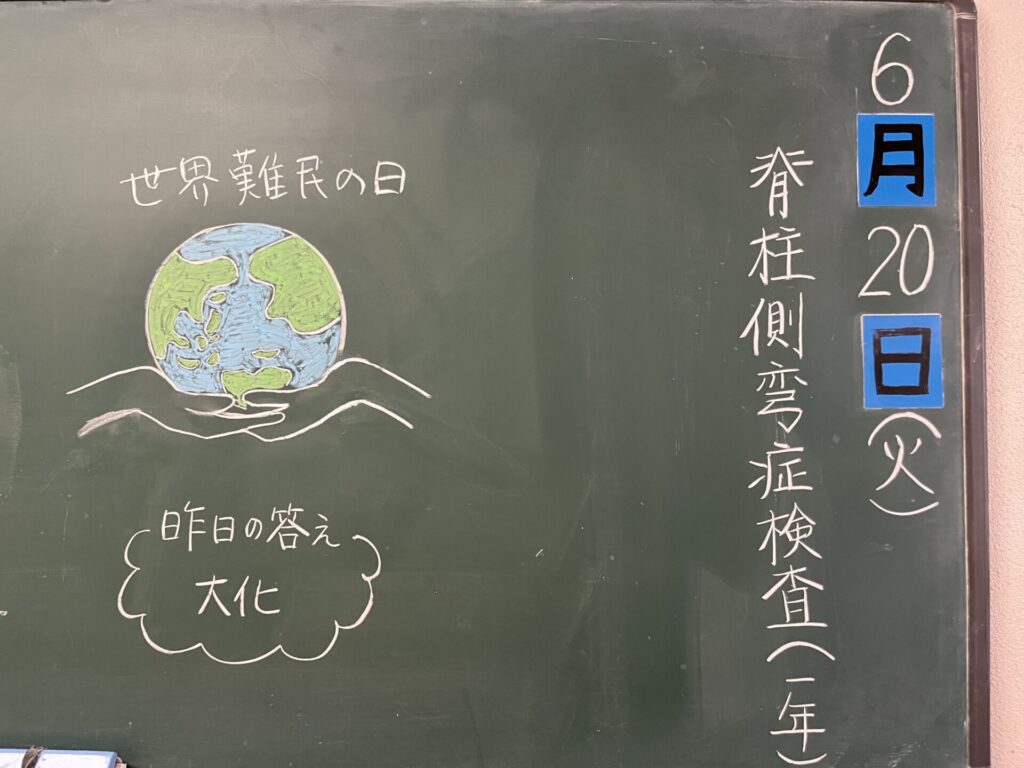 6月20日(火)
脊柱側弯症検査(一年)
世界難民の日
昨日の答え
大化